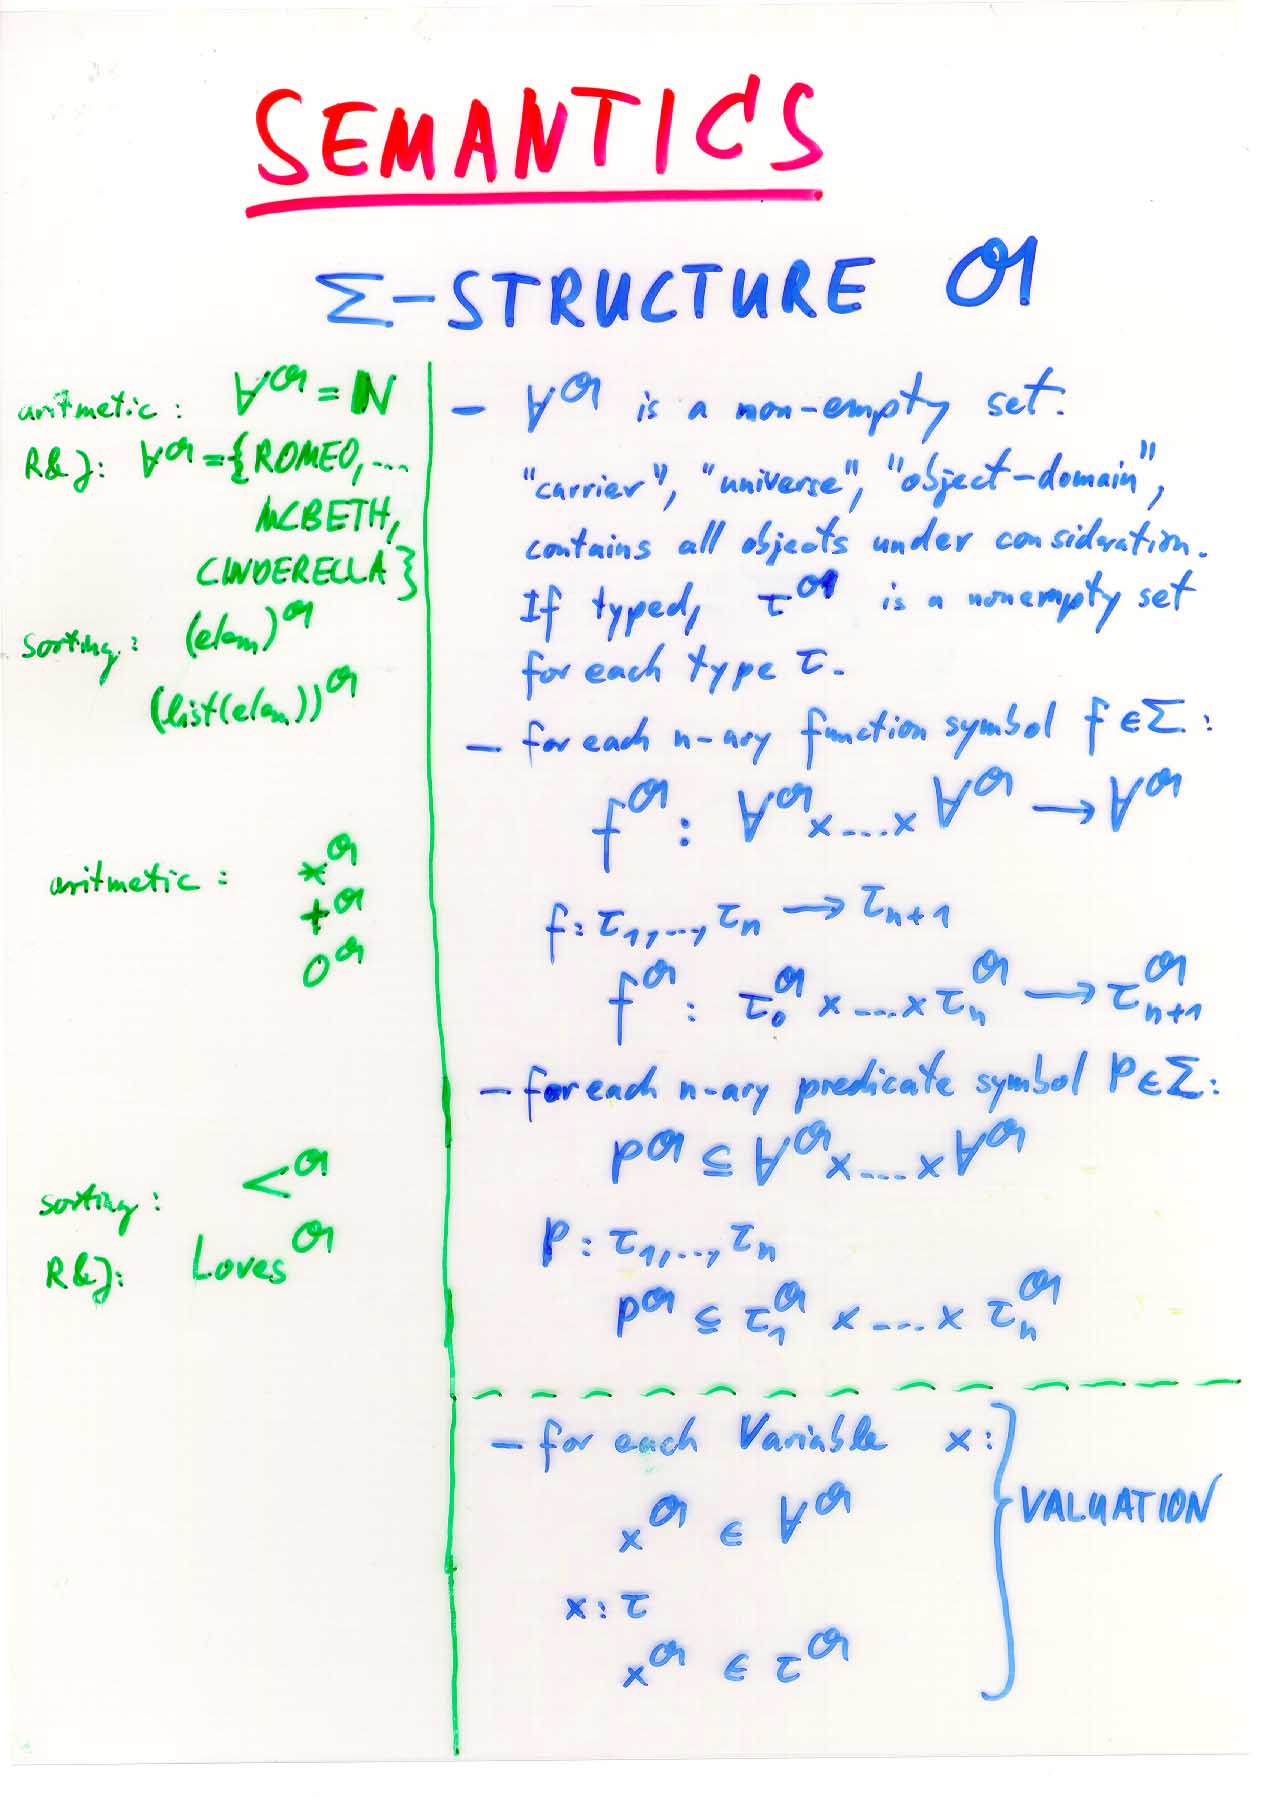 SEMANTICS
Σ-STRUCTURE 𝔄
aritmetic : ∀^𝔄 = ℕ
R&J: ∀^𝔄 = {ROMEO, ...
MCBETH,
CINDERELLA}
sorting : (elem)^𝔄
(list(elem))^𝔄
aritmetic : *^𝔄
+^𝔄
0^𝔄
sorting : <^𝔄
R&J: Loves^𝔄
– ∀^𝔄 is a non-empty set:
"carrier", "universe", "object-domain",
contains all objects under consideration.
If typed, τ^𝔄 is a nonempty set
for each type τ.
– for each n-ary function symbol f ∈ Σ :
f^𝔄 : ∀^𝔄 × ... × ∀^𝔄 → ∀^𝔄
f : τ_1, ..., τ_n → τ_{n+1}
f^𝔄 : τ_0^𝔄 × ... × τ_n^𝔄 → τ_{n+1}^𝔄
– for each n-ary predicate symbol P ∈ Σ :
P^𝔄 ⊆ ∀^𝔄 × ... × ∀^𝔄
P : τ_1, .., τ_n
P^𝔄 ⊆ τ_1^𝔄 × ... × τ_n^𝔄
– for each Variable x :
x^𝔄 ∈ ∀^𝔄
x : τ
x^𝔄 ∈ τ^𝔄
VALUATION